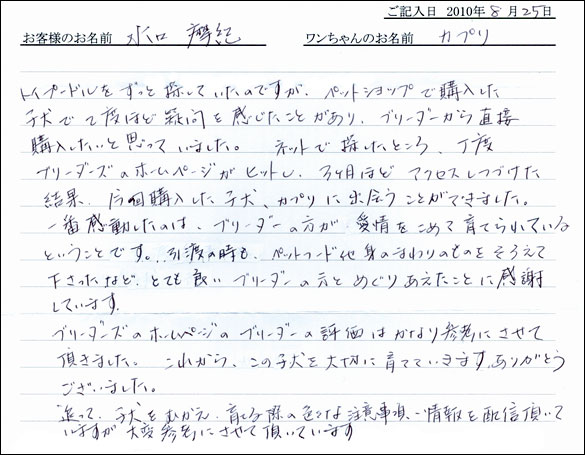 ご記入日 2010年 8月 25日
お客様のお名前 水口 摩紀 ワンちゃんのお名前 カプリ
トイプードルをずっと探していたのですが、ペットショップで購入した
子犬で2度ほど疑問を感じたことがあり、ブリーダーから直接
購入したいと思っていました。 ネットで探したところ、丁度
ブリーダーズのホームページがヒットし、3ヶ月ほど アクセスしつづけた
結果、今回購入した子犬、カプリに出会うことができました。
一番感動したのは、ブリーダーの方が愛情をこめて育てられている
ということです。引渡の時も、ペットフード他身のまわりのものをそろえて
下さったなど、とても良いブリーダーの方とめぐりあえたことに感謝
しています。
ブリーダーズのホームページのブリーダーの評価はかなり参考にさせて
頂きました。 これから、この子犬を大切に育てていきます。ありがとう
ございました。
追って、子犬をむかえ、育てる際の色々な注意事項、情報を配信頂いて
いますが大変参考にさせて頂いています